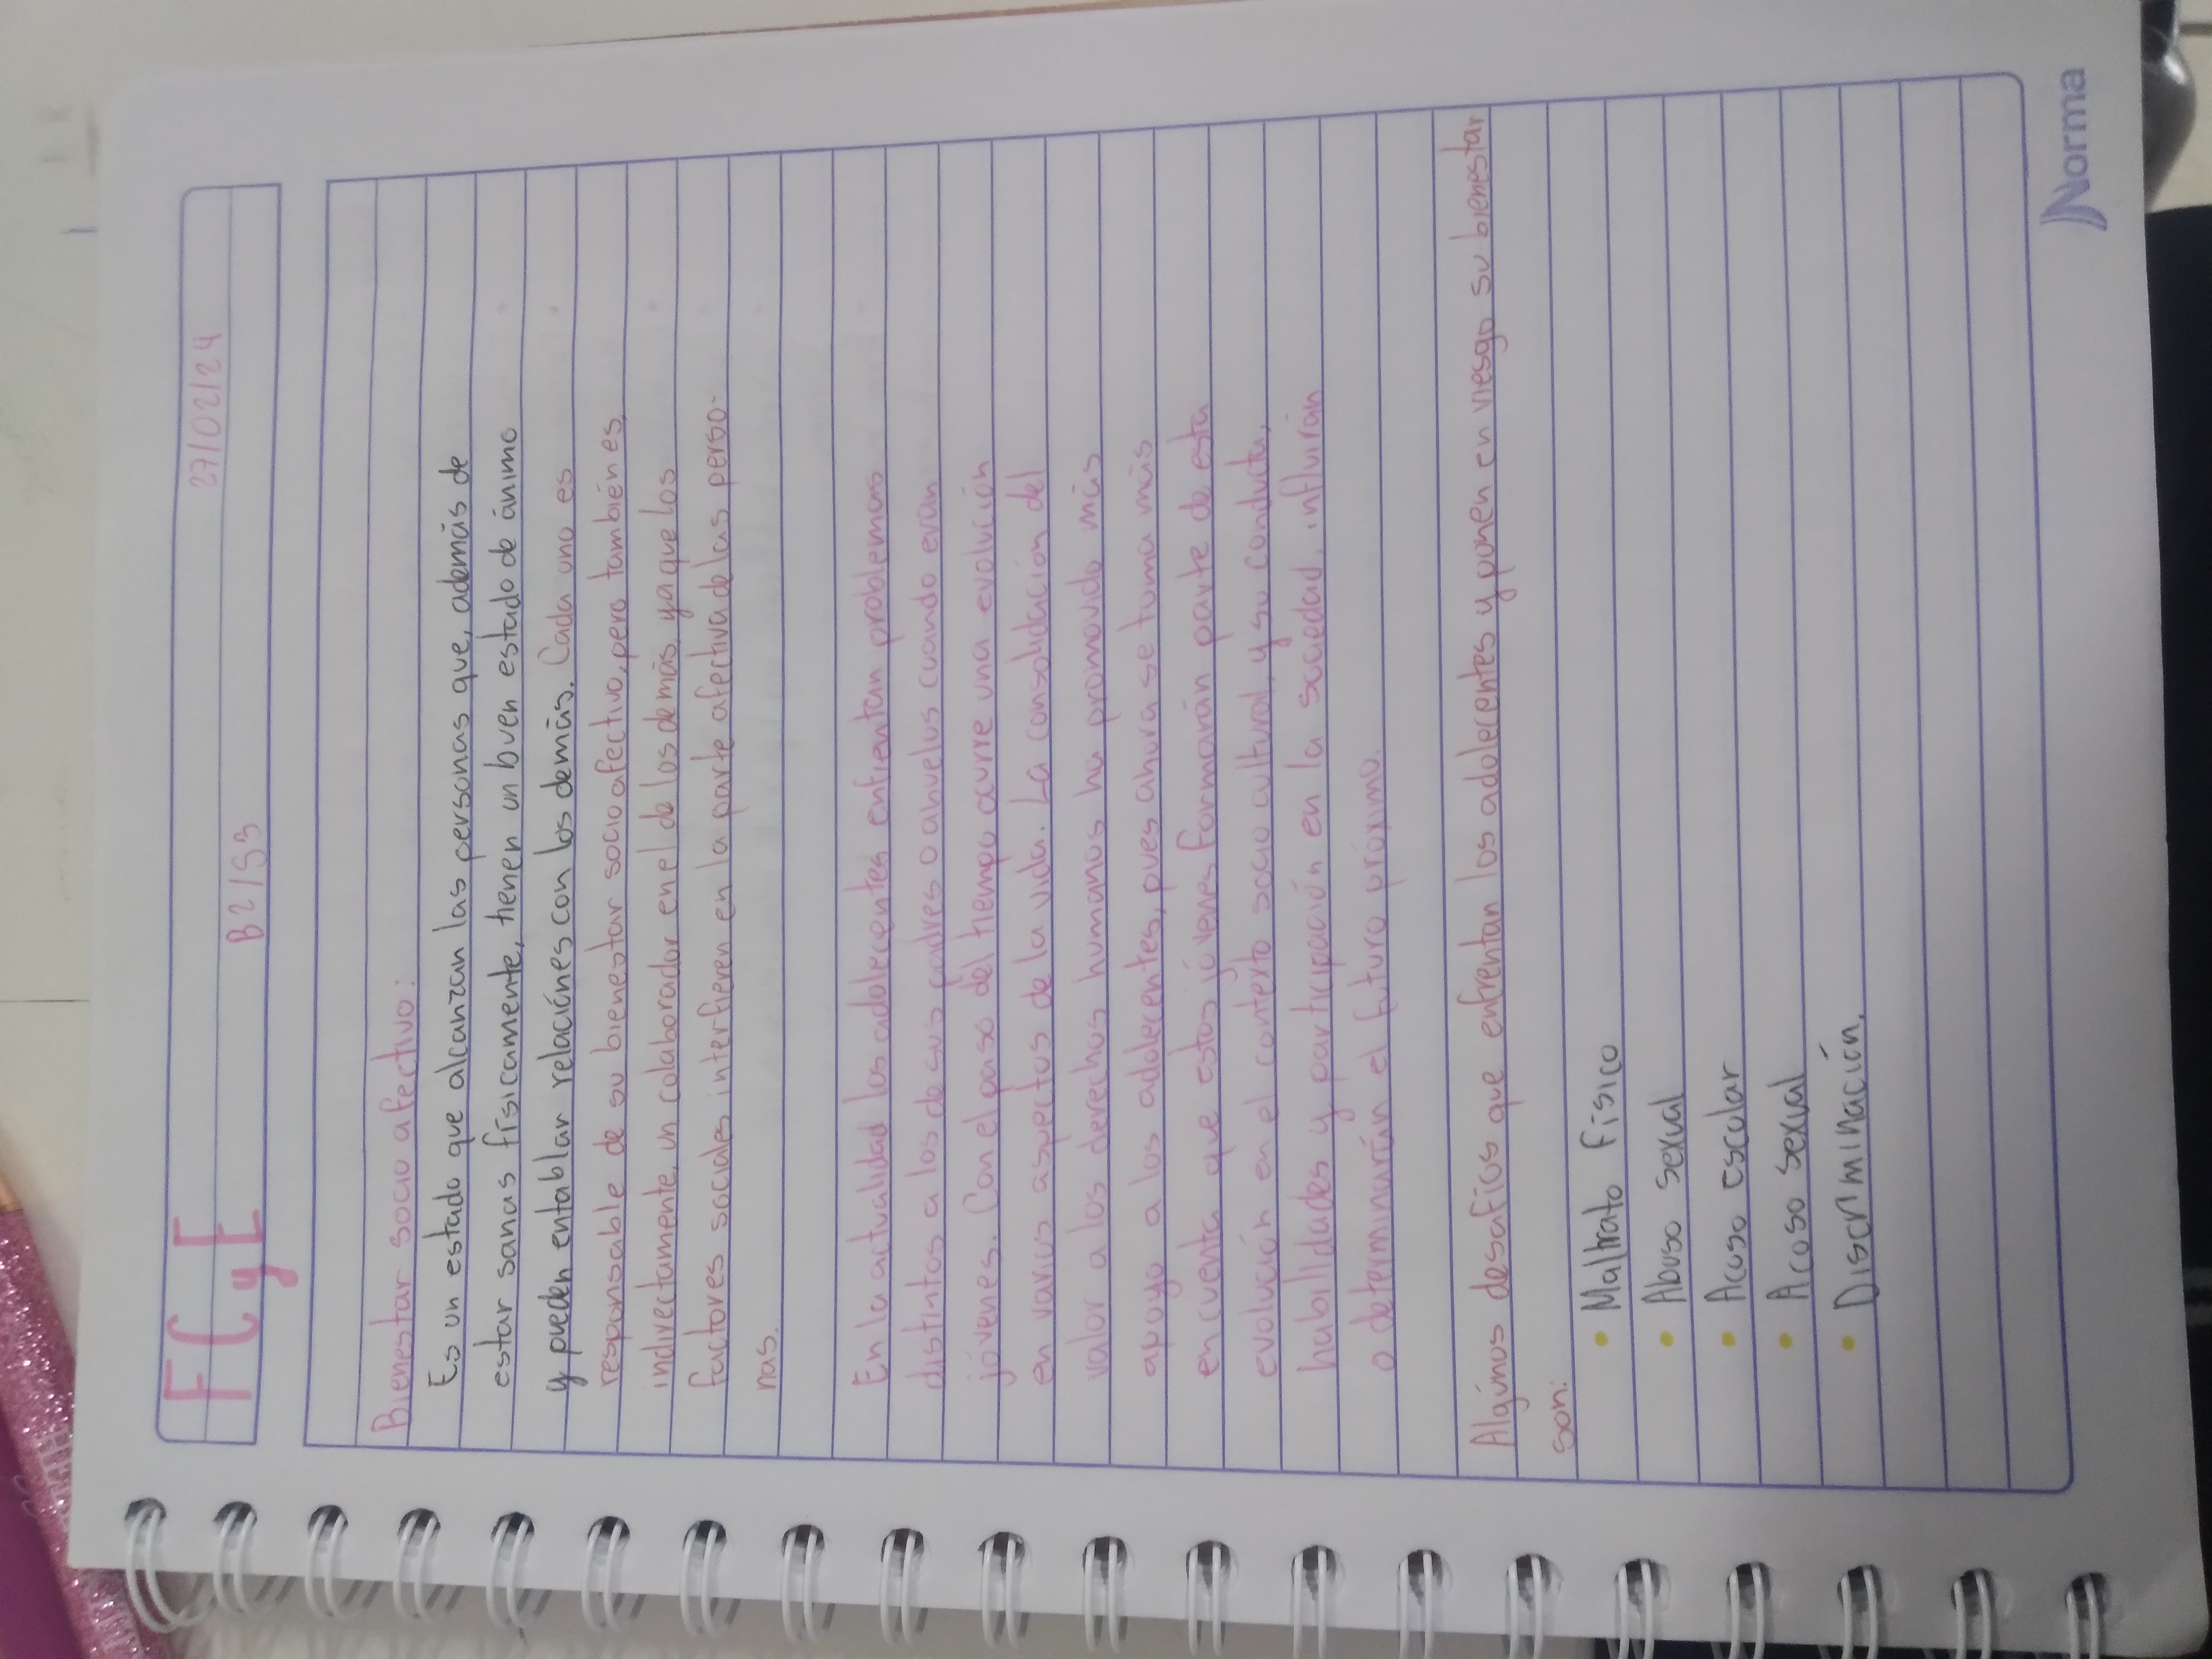 F C y E
27/02/24
B2/S3
Bienestar socio afectivo:
Es un estado que alcanzan las personas que, además de
estar sanas físicamente, tienen un buen estado de ánimo
y pueden entablar relaciónes con los demás. Cada uno es
responsable de su bienestar socio afectivo, pero también es,
indirectamente, un colaborador en el de los demás, ya que los
factores sociales interfieren en la parte afectiva de las perso-
nas.
En la actualidad los adolecentes enfrentan problemas
distintos a los de sus padres o abuelos cuando eran
jóvenes. Con el paso del tiempo ocurre una evolución
en varios aspectos de la vida. La consolidación del
valor a los derechos humanos ha promovido más
apoyo a los adolecentes, pues ahora se toma más
en cuenta que estos jóvenes formarán parte de esta
evolución en el contexto socio cultural, y su conducta,
habilidades y participación en la sociedad, influirán
o determinarán el futuro próximo.
Algúnos desafíos que enfrentan los adolecentes y ponen en riesgo su bienestar
son:
• Maltrato físico
• Abuso sexual
• Acoso escolar
• Acoso sexual
• Discriminación.
Norma